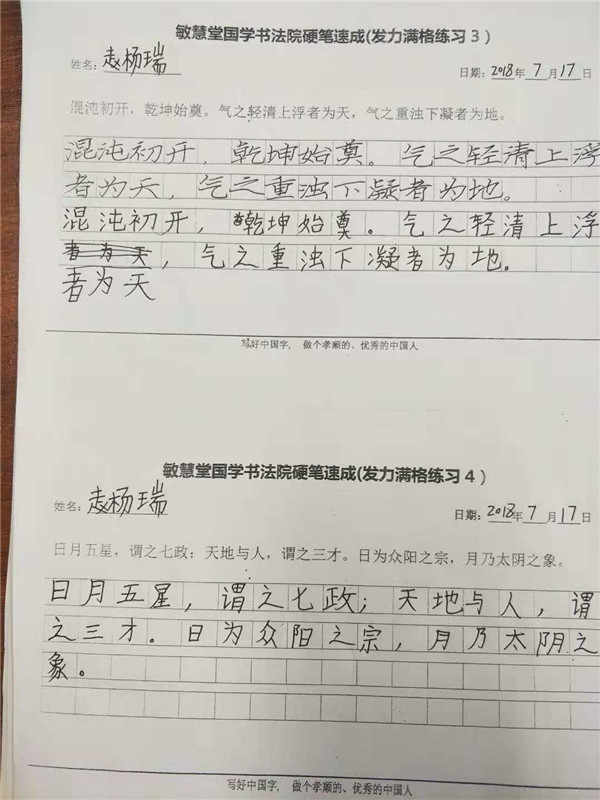 敏慧堂国学书法院硬笔速成(发力满格练习3)
姓名:赵杨瑞 日期:2018年7月17日
混沌初开,乾坤始奠。气之轻清上浮者为天,气之重浊下凝者为地。
混沌初开,乾坤始奠。气之轻清上浮
者为天,气之重浊下凝者为地。
混沌初开,乾坤始奠。气之轻清上浮
者为天,气之重浊下凝者为地。
者为天
写好中国字,做个孝顺的、优秀的中国人
敏慧堂国学书法院硬笔速成(发力满格练习4)
姓名:赵杨瑞 日期:2018年7月17日
日月五星,谓之七政;天地与人,谓之三才。日为众阳之宗,月乃太阴之象。
日月五星,谓之七政;天地与人,谓
之三才。日为众阳之宗,月乃太阴之
象。
写好中国字,做个孝顺的、优秀的中国人